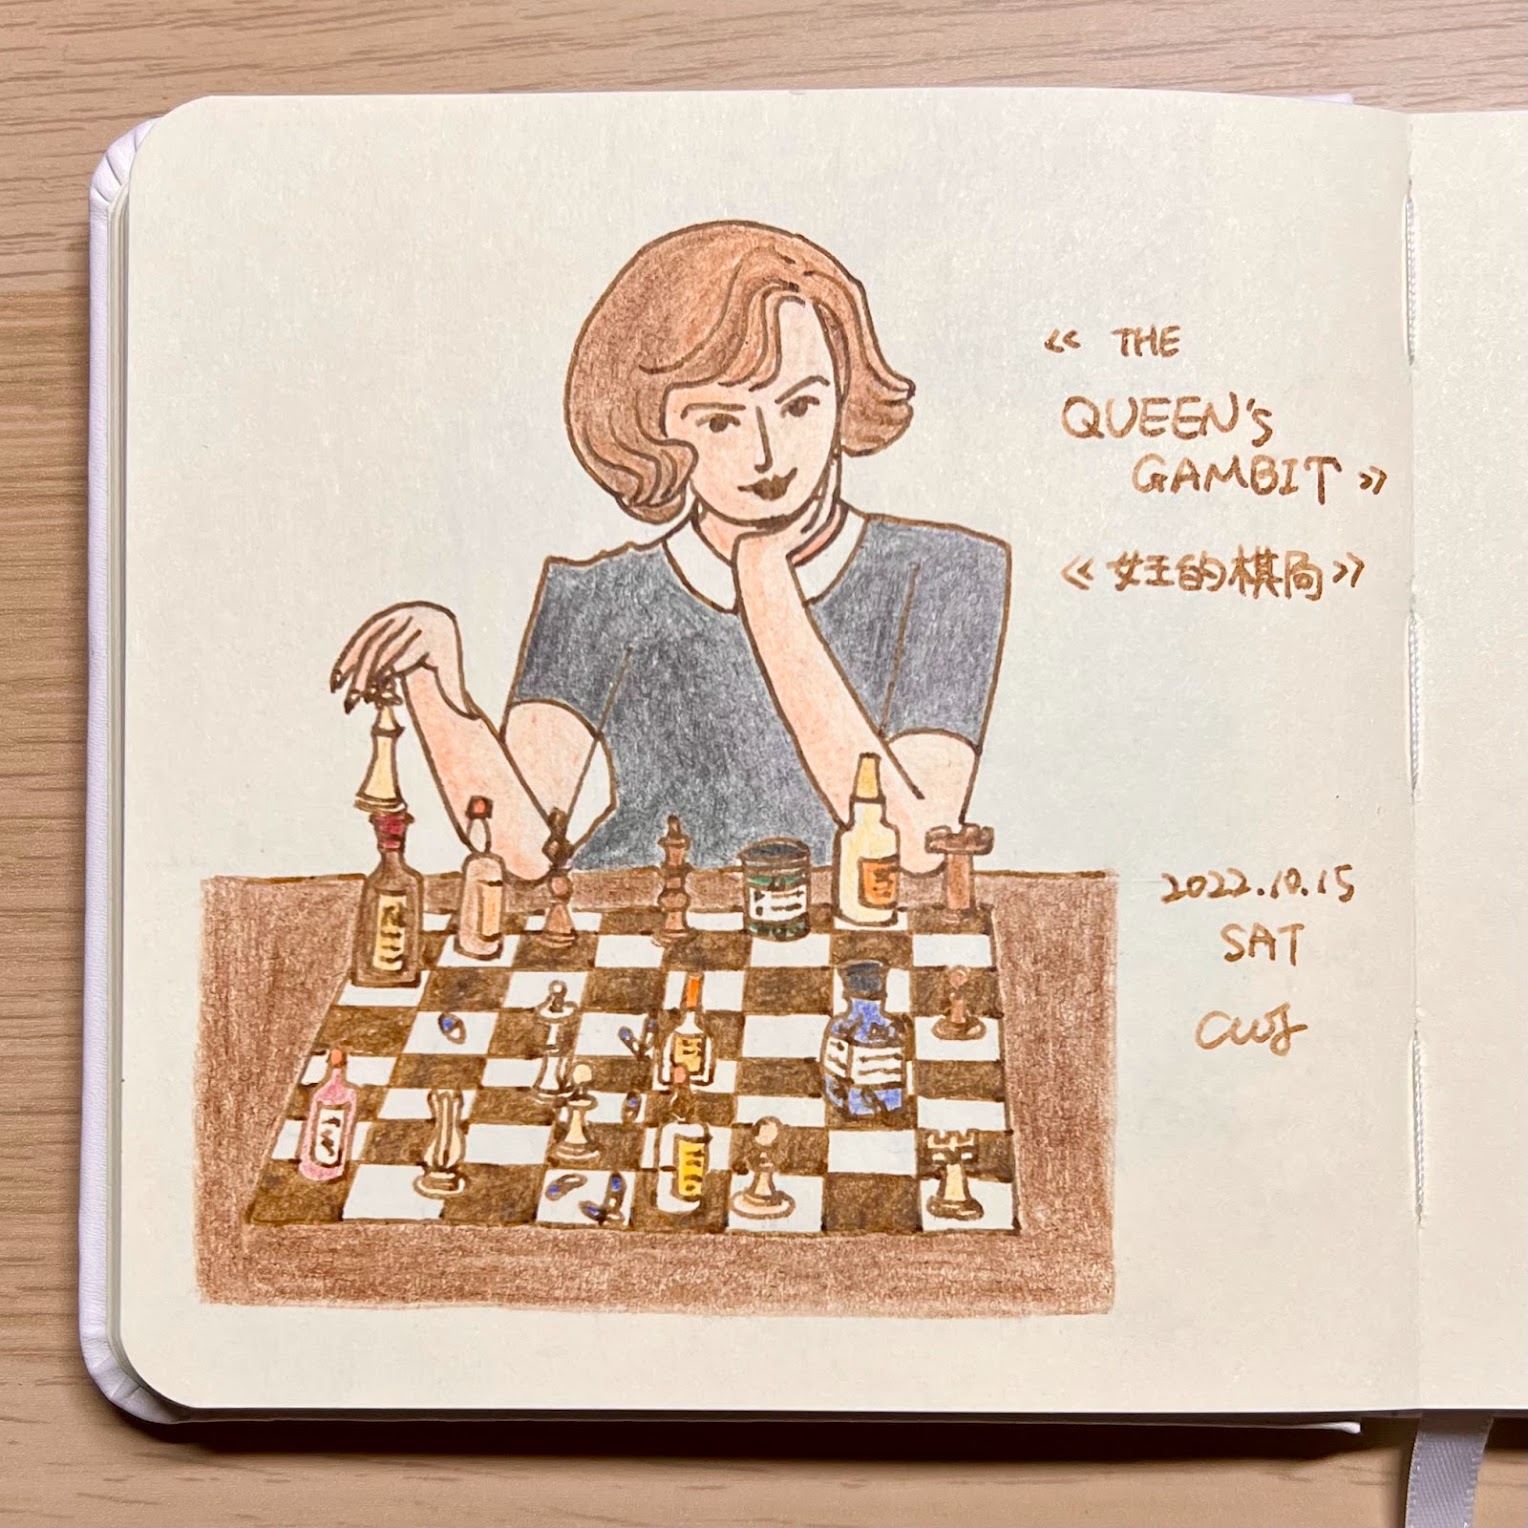 《 THE
QUEEN's
GAMBIT 》
《女王的棋局》
2022.10.15
SAT
CWJ